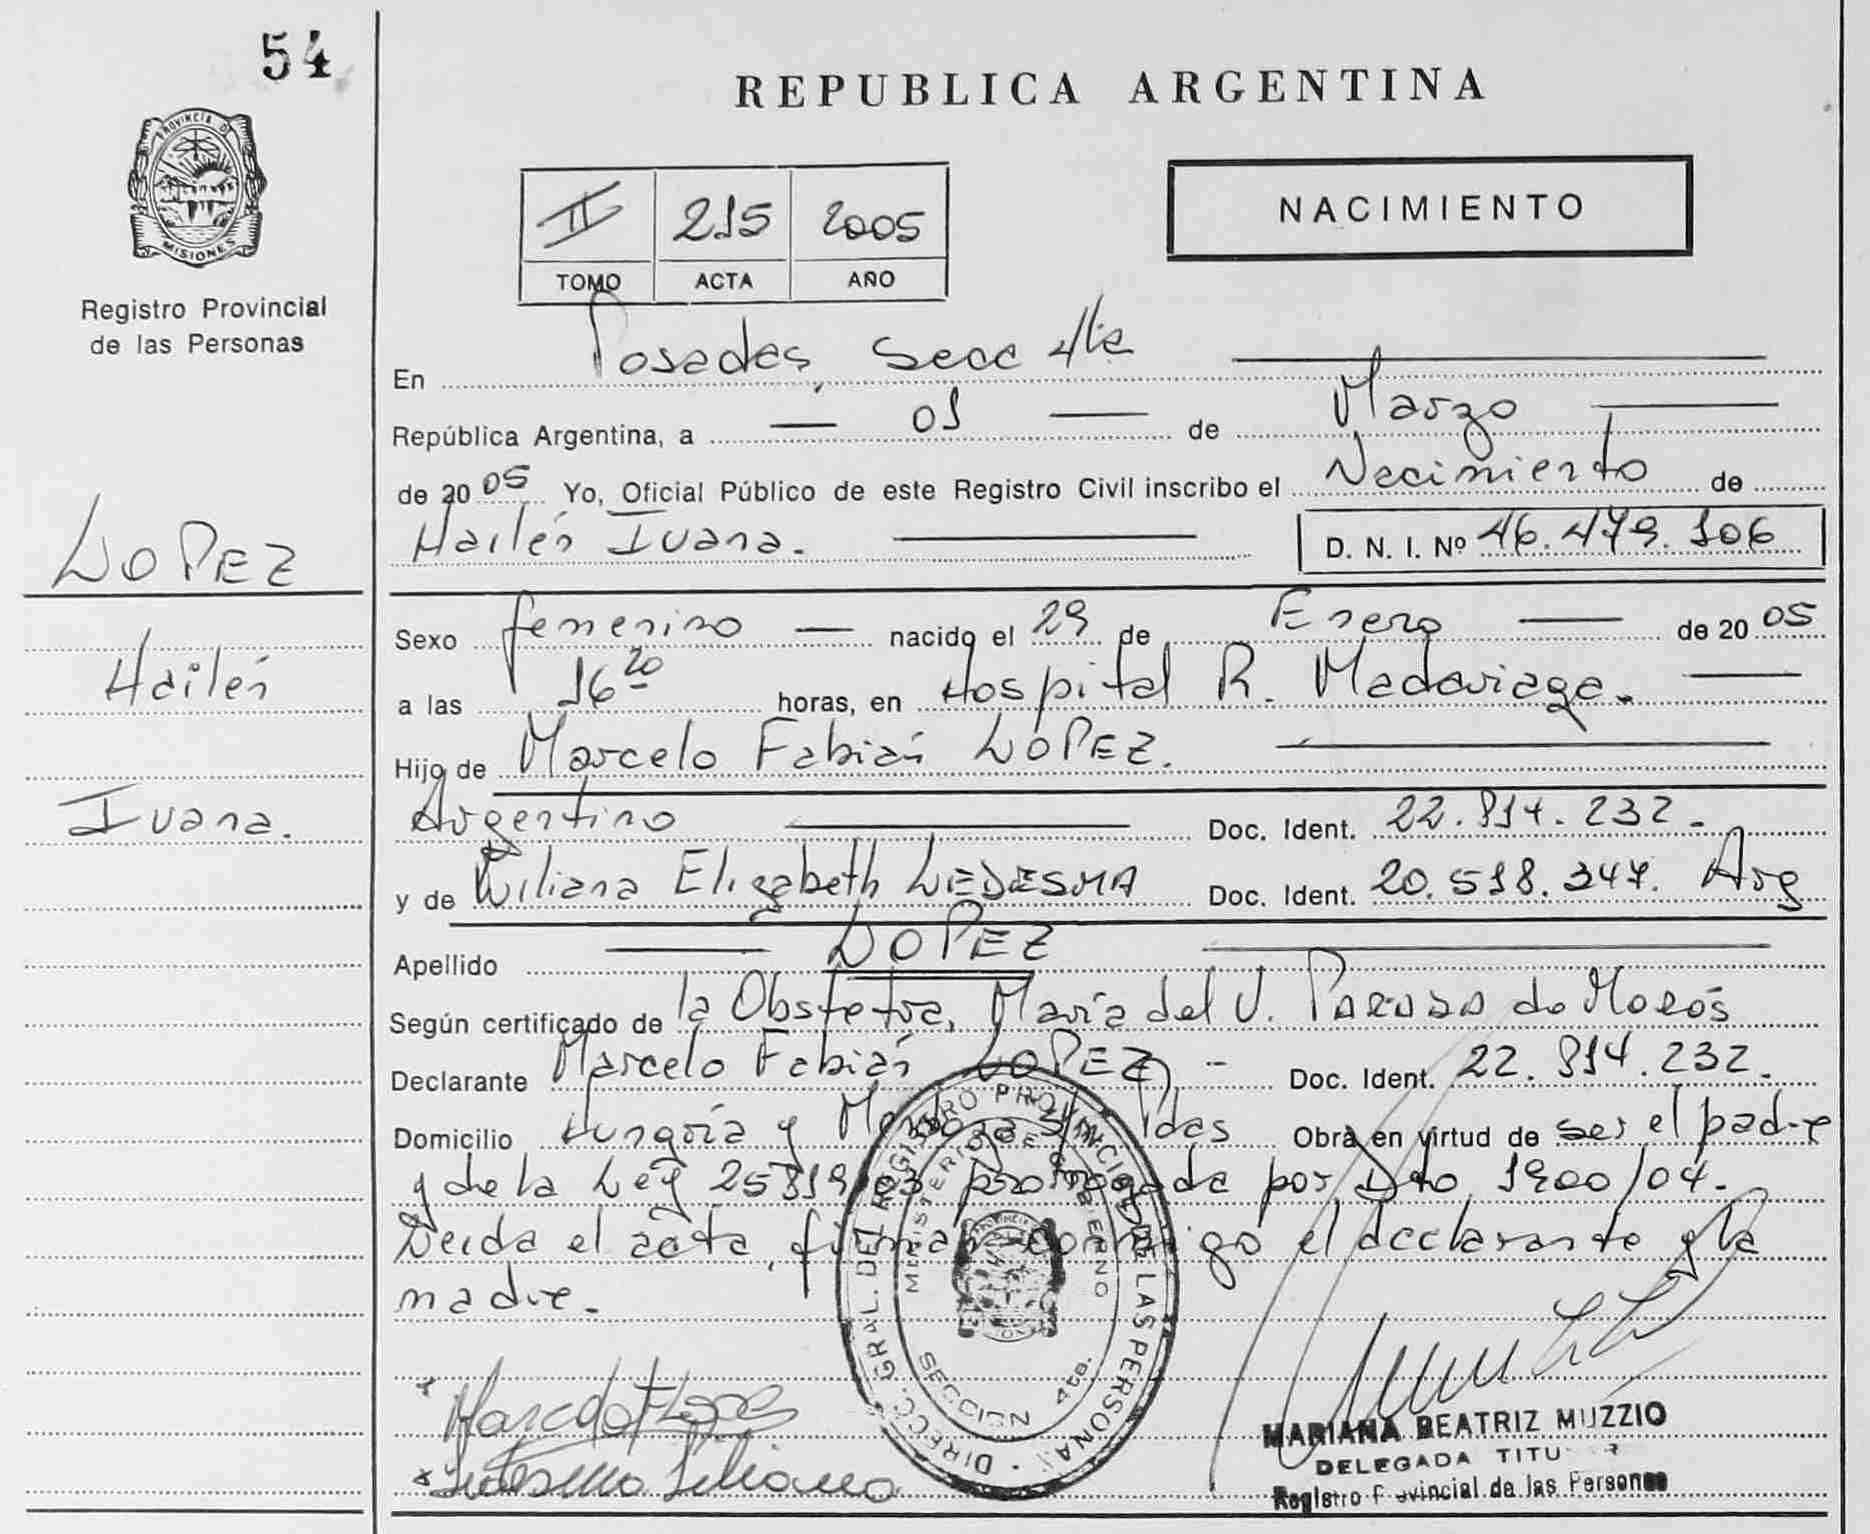 54
PROVINCIA DE
MISIONES
Registro Provincial
de las Personas
LOPEZ
Hailén
Iuana.
REPUBLICA ARGENTINA
II 215 2005
TOMO ACTA AÑO
NACIMIENTO
En Posadas, Secc 4ta
República Argentina, a 01 de Marzo
de 2005 Yo, Oficial Público de este Registro Civil inscribo el Nacimiento de
Hailén Iuana. D. N. I. Nº 46.479.106
Sexo femenino nacido el 29 de Enero de 2005
a las 16 20 horas, en Hospital R. Madariaga.
Hijo de Marcelo Fabián LOPEZ.
Argentino Doc. Ident. 22.814.232.
y de Liliana Elizabeth LEDESMA Doc. Ident. 20.518.347. Arg
Apellido LOPEZ
Según certificado de la Obstetra, María del V. de
Declarante Marcelo Fabián LOPEZ - Doc. Ident. 22.814.232.
Domicilio Hungría y Pdas Obra en virtud de ser el padre
y de la Ley 25819/03 prorrogada por Dto 1900/04.
Leida el acta, firman conmigo el declarante y la
madre.
DIRECC. GRAL. DEL REGISTRO PROVINCIAL DE LAS PERSONAS
MINISTERIO DE GOBIERNO
SECCION 4ta.
Marcelo F Lopez
Ledesma Liliana
MARIANA BEATRIZ MUZZIO
DELEGADA TITULAR
Registro Provincial de las Personas